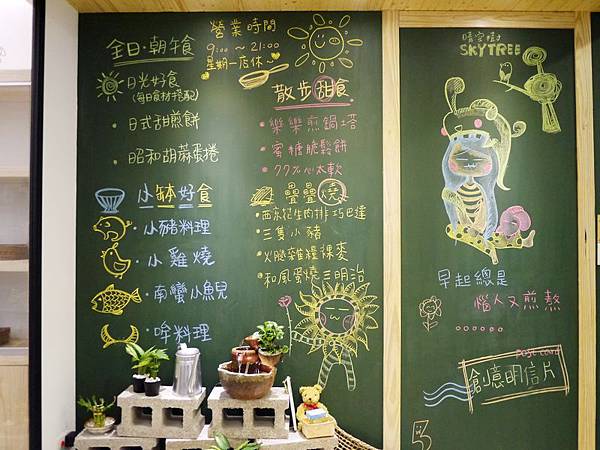 全日·朝食
日光好食
(每日食材搭配)
·日式甜煎餅
·昭和胡蔴蛋捲
小缽好食
·小豬料理
·小雞燒
·南蠻小魚兒
·哞料理
營業時間
9:00~21:00
星期一店休~
散步甜食
·樂樂煎鍋塔
·蜜糖脆鬆餅
·QQ心太軟
疊疊燒
·西京花生肉排巧巴達
·三隻小豬
·火腿雜糧裸麥
·和風蛋燒三明治
晴空樹
SKYTREE
早起總是
惱人又煎熬
......
Post card
創意明信片